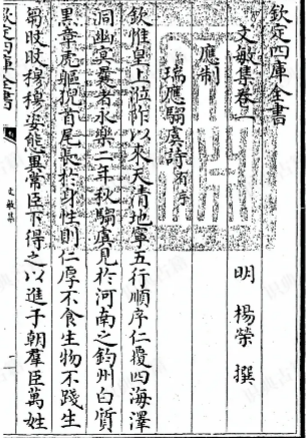 欽定四庫全書
文敏集卷一
明 楊榮 撰
應制
瑞應騶虞詩有序
欽惟皇上涖阼以來天清地寧五行順序仁覆四海澤
洞幽冥曩者永樂二年秋騶虞見於河南之鈞州白質
黑章虎軀猊首尾長於身性則仁厚不食生物不踐生
芻旼旼穆穆姿態異常臣下得之以進于朝羣臣萬姓
欽定四庫全書
文敏集
一